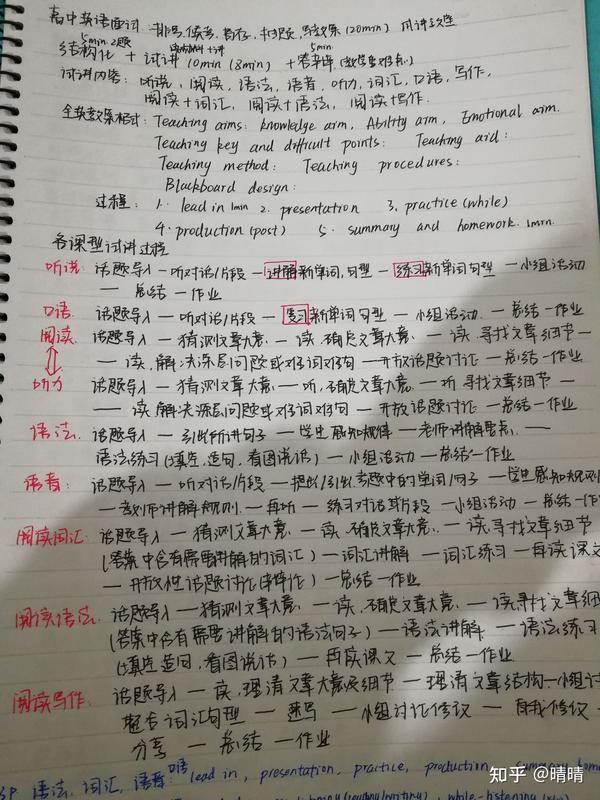 高中英语面试: 抽号, 备考, 抽题, 写教案(20min) 试讲教室
5min 2题 5min
结构化 + 试讲 10min (8min) + 答辩
试讲内容: 听说, 阅读, 语法, 语音, 听力, 词汇, 口语, 写作,
阅读+词汇, 阅读+语法, 阅读+写作.
全英教案格式: Teaching aims: knowledge aim, Ability aim, Emotional aim.
Teaching key and difficult points: Teaching aid:
Teaching method: Teaching procedures:
Blackboard design:
过程: 1. lead in 1min 2. presentation 3. practice (while)
4. production (post) 5. summary and homework. 1min.
各课型试讲过程
听说: 话题导入 — 听对话/片段 — 讲解新单词, 句型 — 练习新单词句型 — 小组活动
— 总结 — 作业
口语: 话题导入 — 听对话/片段 — 复习新单词句型 — 小组活动 — 总结 — 作业
阅读: 话题导入 — 猜测文章大意 — 读, 确定文章大意 — 读, 寻找文章细节 —
— 读, 解决深层问题或好词好句 — 开放话题讨论 — 总结 — 作业
听力 话题导入 — 猜测文章大意 — 听, 确定文章大意 — 听 寻找文章细节 —
— 读 解决深层问题或好词好句 — 开放话题讨论 — 总结 — 作业
语法: 话题导入 — 引出所讲句子 — 学生感知规律 — 老师讲解重点 —
语法练习(填空, 造句, 看图说话) — 小组活动 — 总结 — 作业
语音: 话题导入 — 听对话/片段 — 提出/引出专题中的单词/句子 — 学生感知规则
— 教师讲解规则 — 再听 — 练习对话或片段 — 小组活动 — 总结 — 作
阅读词汇: 话题导入 — 猜测文章大意 — 读, 确定文章大意 — 读, 寻找文章细节
(答案中含有需要讲解的词汇) — 词汇讲解 — 词汇练习 — 再读课文
— 开放性话题讨论(或作) — 总结 — 作业
阅读语法: 话题导入 — 猜测文章大意 — 读, 确定文章大意 — 读, 寻找文章细
(答案中含有需要讲解的语法句子) — 语法讲解 — 语法练习
(填空 造句, 看图说话) — 再读课文 — 总结 — 作业
阅读写作: 话题导入 — 读, 理清文章大意及细节 — 理清文章结构 — 小组讨
词汇句型 — 速写 — 小组讨论修改 — 自我修改
分享 — 总结 — 作业
语法, 词汇, 语音, 口语 lead in, presentation, practice, production, summary home
while-listening
知乎 @晴晴